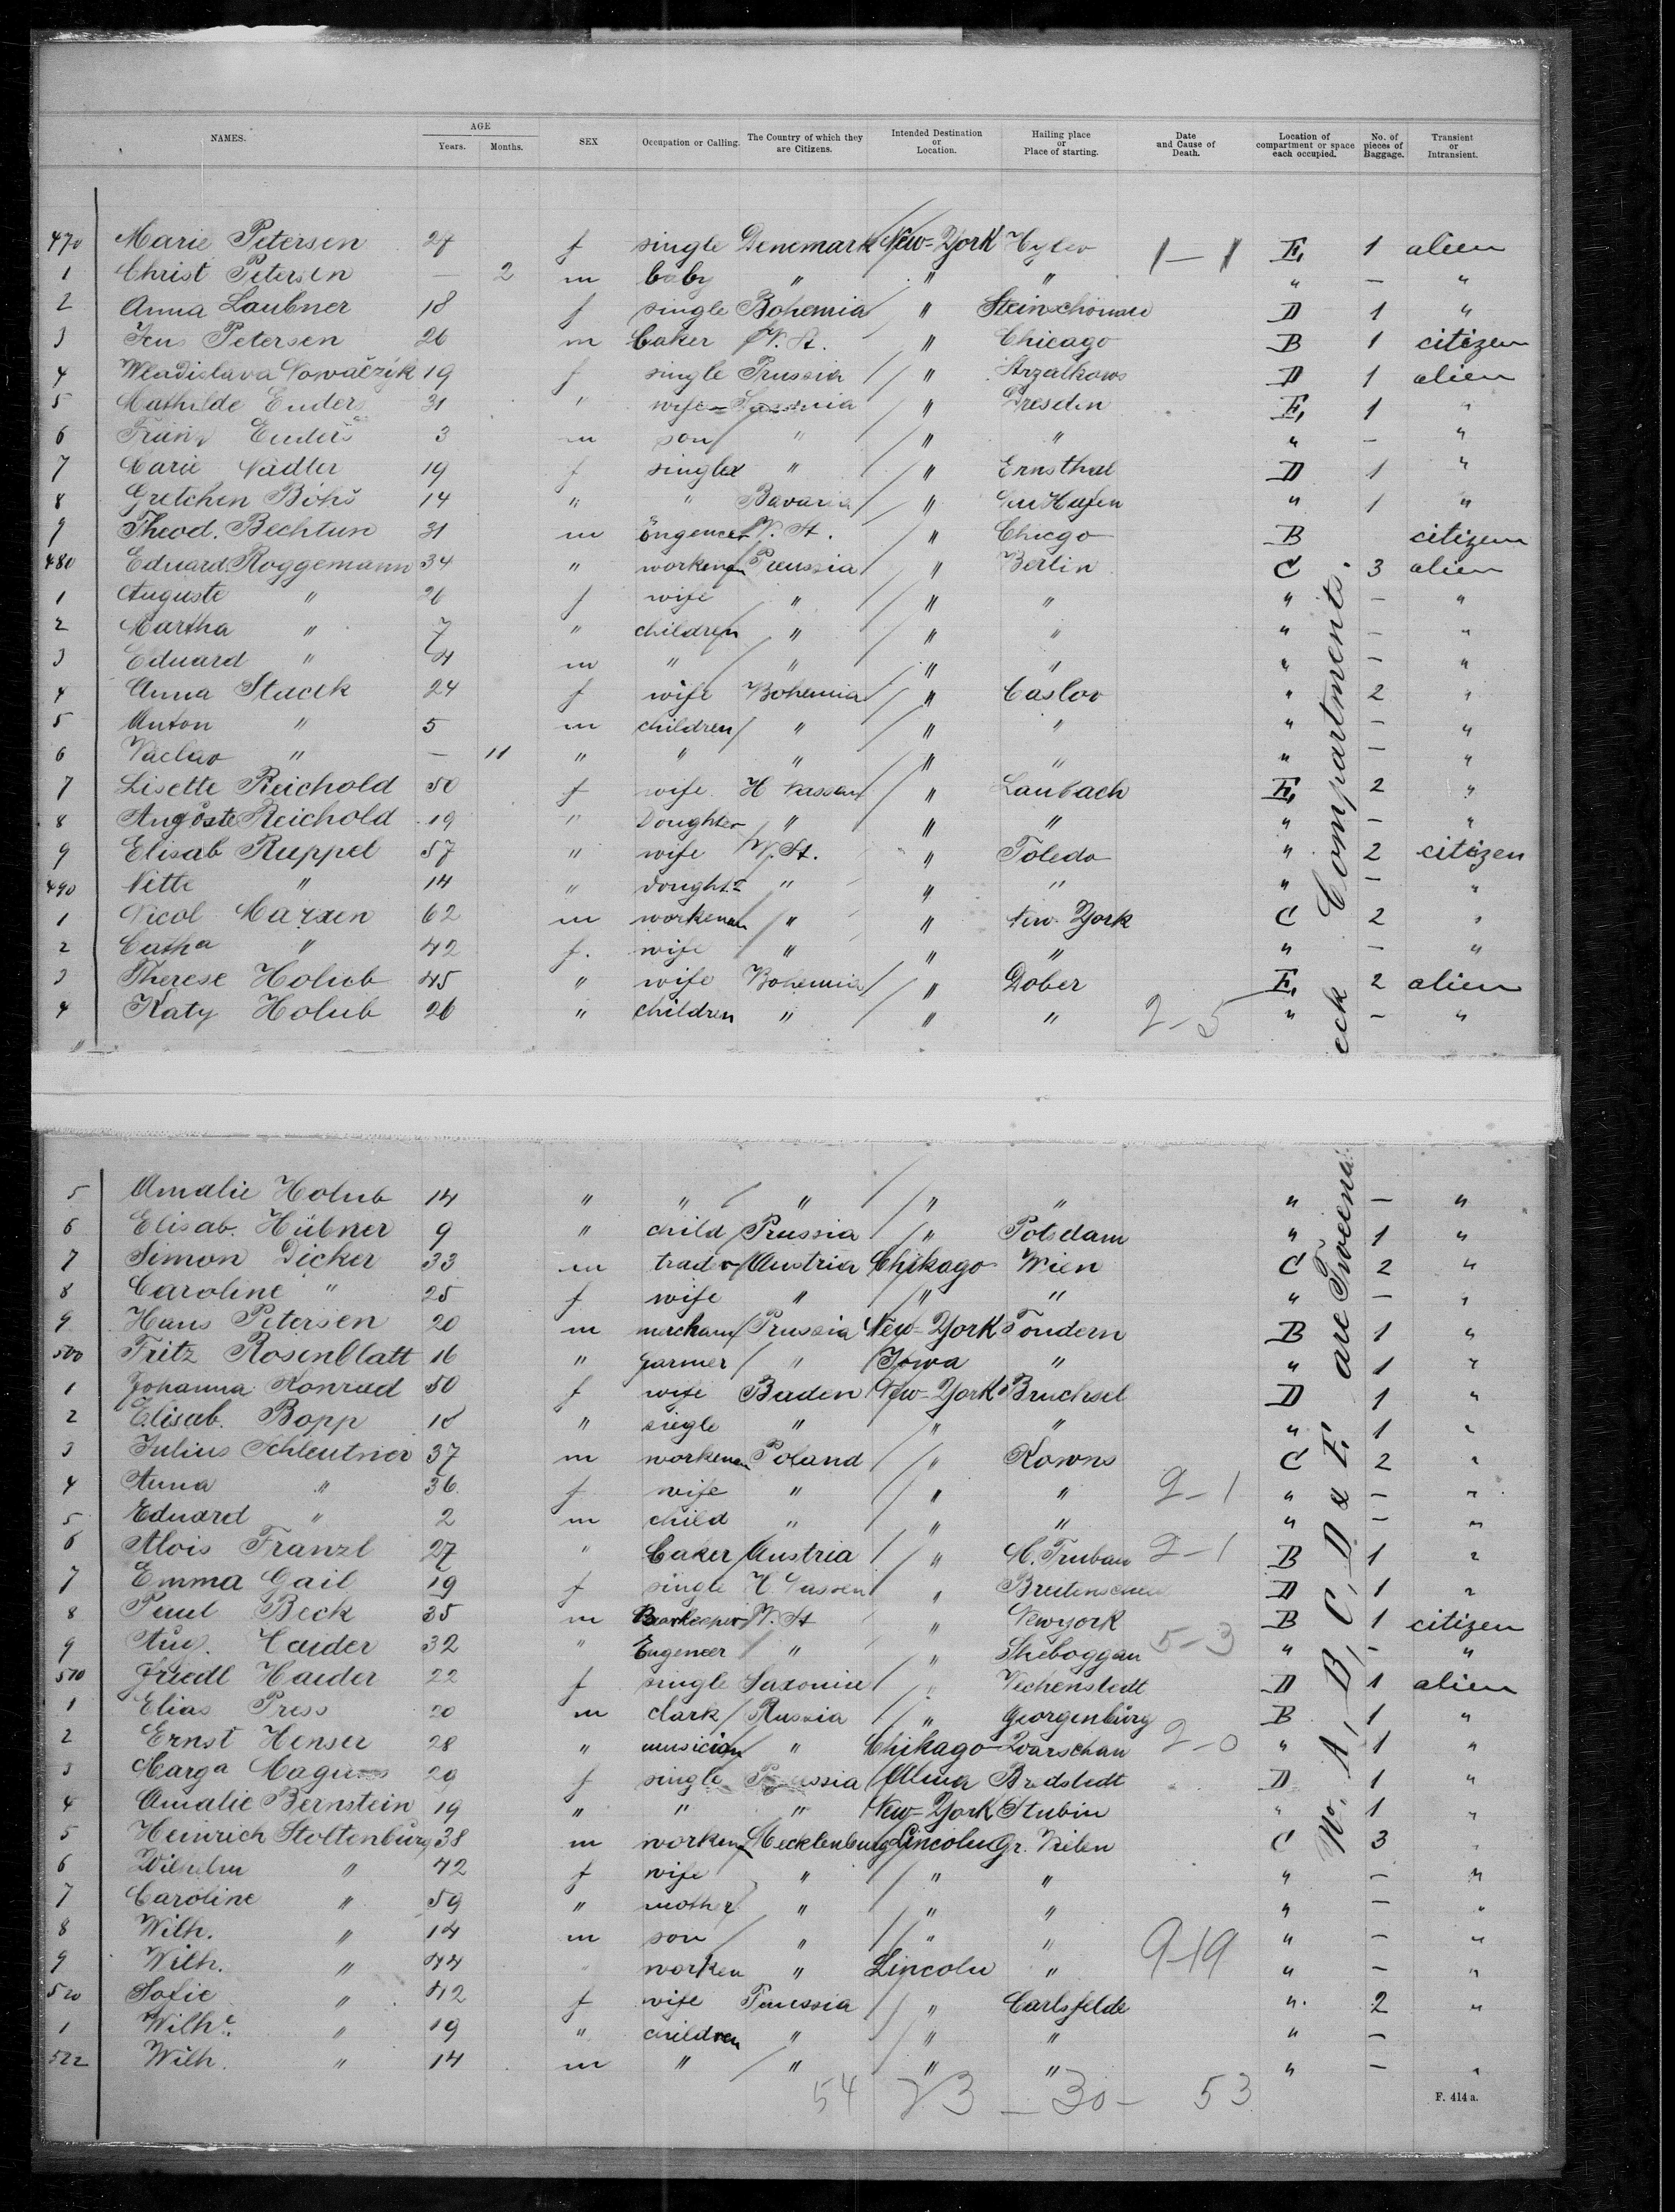 NAMES. AGE Years. Months. SEX Occupation or Calling. The Country of which they are Citizens. Intended Destination or Location. Hailing place or Place of starting. Date and Cause of Death. Location of compartment or space each occupied. No. of pieces of Baggage. Transient or Intransient.
470 Marie Petersen f single Denemark New-York 1-1 E, 1 alien
1 Christ Petersen — 2 m baby " " " " — "
2 Anna Laubner 18 f single Bohemia " D 1 "
3 Jens Petersen 26 m baker V. St. " Chicago B 1 citizen
4 Wladislava 19 f single Prussia " D 1 alien
5 Mathilde Enders 31 " wife " Dresden E, 1 "
6 Enders 3 m son " " " " — "
7 Marie Nädler 19 f single " " Ernsthal D 1 "
8 Gretchen 14 " " Bavaria " " 1 "
9 Theod. Bechtun 31 m V. St. " Chicgo B citizen
480 Eduard Roggemann 34 " workman Preussia " Berlin C 3 alien
1 Auguste " 26 f wife " " " " — "
2 Martha " 7 " children " " " " — "
3 Eduard " 4 m " " " " " — "
4 Anna Stacek 24 f wife Bohemia " Caslov " 2 "
5 Anton " 5 m children " " " " — "
6 Vaclav " — 11 " " " " " " — "
7 Lisette Reichold 50 f wife H " Laubach E, 2 "
8 Auguste Reichold 19 " Doughter " " " " — "
9 Elisab Ruppel 57 " wife V. St. " Toledo " 2 citizen
490 Nitte " 14 " " " " " — "
1 Nicol Marxen 62 m workman " " New-York C 2 "
2 Catha " 42 f. wife " " " " — "
3 Therese Holub 45 " wife Bohemia " Dober E, 2 alien
4 Katy Holub 26 " children " " " 2-5 " — "
5 Amalie Holub 14 " " " " " " — "
6 Elisab. Hübner 9 " child Prussia " Potsdam " 1 "
7 Simon Dicker 33 m trader Austria Chikago Wien C 2 "
8 Caroline " 25 f wife " " " " — "
9 Hans Petersen 20 m merchant Prussia New-York Tondern B 1 "
500 Fritz Rosenblatt 16 " farmer " Iowa " " 1 "
1 Johanna Konrad 50 f wife Baden New-York Bruchsel D 1 "
2 Elisab. Bopp 18 " siegle " " " " 1 "
3 Julius Schleutner 37 m workman Poland " Kowns C 2 "
4 Anna " 36 f wife " " " 2-1 " — "
5 Eduard " 2 m child " " " " — "
6 Alois Franzl 27 " baker Austria " M. Trubau 2-1 B 1 "
7 Emma Gail 19 f single H. " D 1 "
8 Paul Beck 35 m Barkeeper V. St " Newyork B 1 citizen
9 Aug. Haider 32 " Eugeneer " " Sheboggan 5-3 " — "
510 Friedl Haider 22 f single Saxonia " Vechenstedt D 1 alien
1 Elias Press 20 m clark Russia " Georgenburg B 1 "
2 Ernst Henser 28 " musician " Chikago Warschau 2-0 " 1 "
3 Marga Magnus 29 f single Prussia Bredstedt D 1 "
4 Amalie Bernstein 19 " " " New-York Stubin " 1 "
5 Heinrich Stoltenburg 38 m workem Mecklenburg Lincoln Gr. C 3 "
6 Wilhelm " 42 f wife " " " " — "
7 Caroline " 59 " mother " " " " — "
8 Wilh. " 14 m son " " " " — "
9 Wilh. " 44 " workem " Lincoln " 9-19 " — "
520 Sofie " 42 f wife Preussia " Carlsfelde " 2 "
1 Wilhe. " 19 " children " " " " —
522 Wilh. " 14 m " " " " " — "
54 23 - 30 - 53
No. A, B, C, D & E, are Tweendeck Compartments.
F. 414 a.